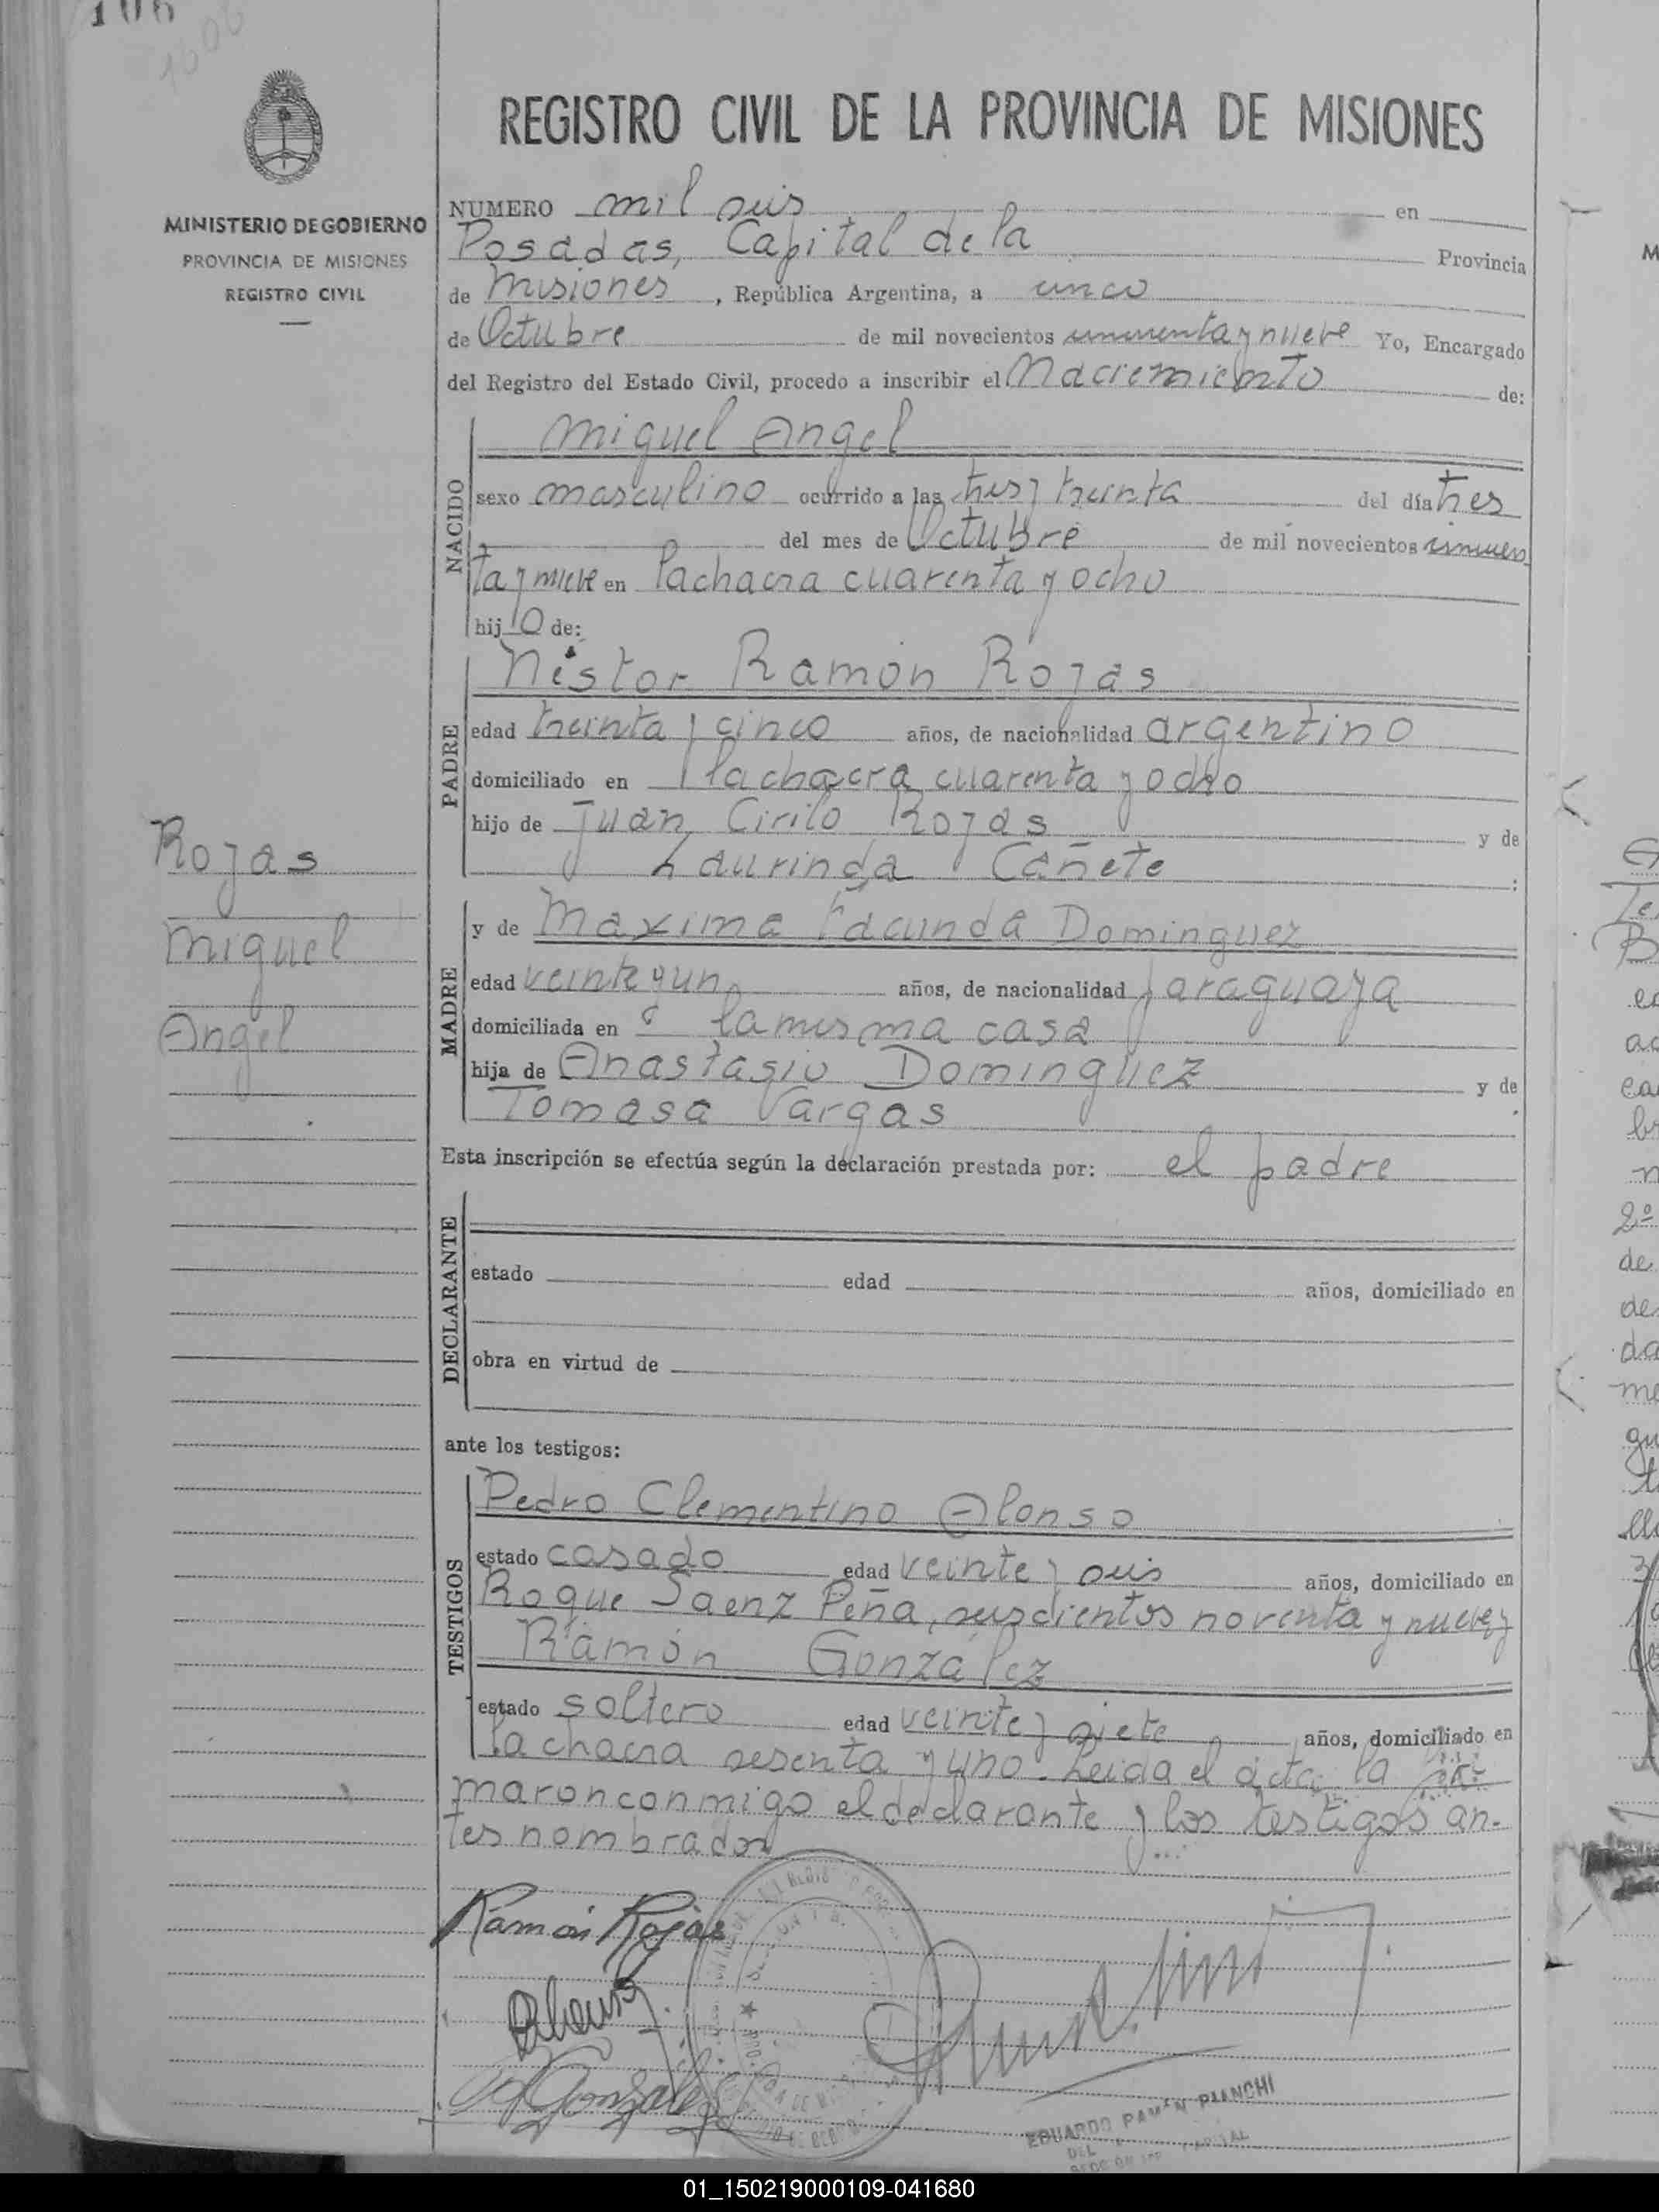 106
1006
REGISTRO CIVIL DE LA PROVINCIA DE MISIONES
MINISTERIO DE GOBIERNO
PROVINCIA DE MISIONES
REGISTRO CIVIL
NUMERO mil seis en
Posadas, Capital de la Provincia
de Misiones, República Argentina, a cinco
de Octubre de mil novecientos cincuenta y nueve Yo, Encargado
del Registro del Estado Civil, procedo a inscribir el Nacimiento de:
NACIDO
Miguel Angel
sexo masculino ocurrido a las tres y treinta del día tres
del mes de Octubre de mil novecientos cincuen
ta y nueve en la chacra cuarenta y ocho
hijo de:
PADRE
Néstor Ramón Rojas
edad treinta y cinco años, de nacionalidad argentino
domiciliado en la chacra cuarenta y ocho
hijo de Juan Cirilo Rojas y de
Laurinda Cañete :
Rojas
Miguel
Angel
MADRE
y de Maxima Facunda Dominguez
edad veinte y un años, de nacionalidad paraguaya
domiciliada en la misma casa
hija de Anastasio Dominguez y de
Tomasa Vargas
Esta inscripción se efectúa según la declaración prestada por: el padre
DECLARANTE
estado edad años, domiciliado en
obra en virtud de
ante los testigos:
TESTIGOS
Pedro Clementino Alonso
estado casado edad veinte y seis años, domiciliado en
Roque Saenz Peña, seiscientos noventa y nueve y
Ramón González
estado soltero edad veinte y siete años, domiciliado en
la chacra sesenta y uno. Leida el acta la fir-
maron conmigo el declarante y los testigos an-
tes nombrados
Ramón Rojas
Alonso
Gonzalez
EDUARDO RAMÓN BIANCHI
01_150219000109-041680